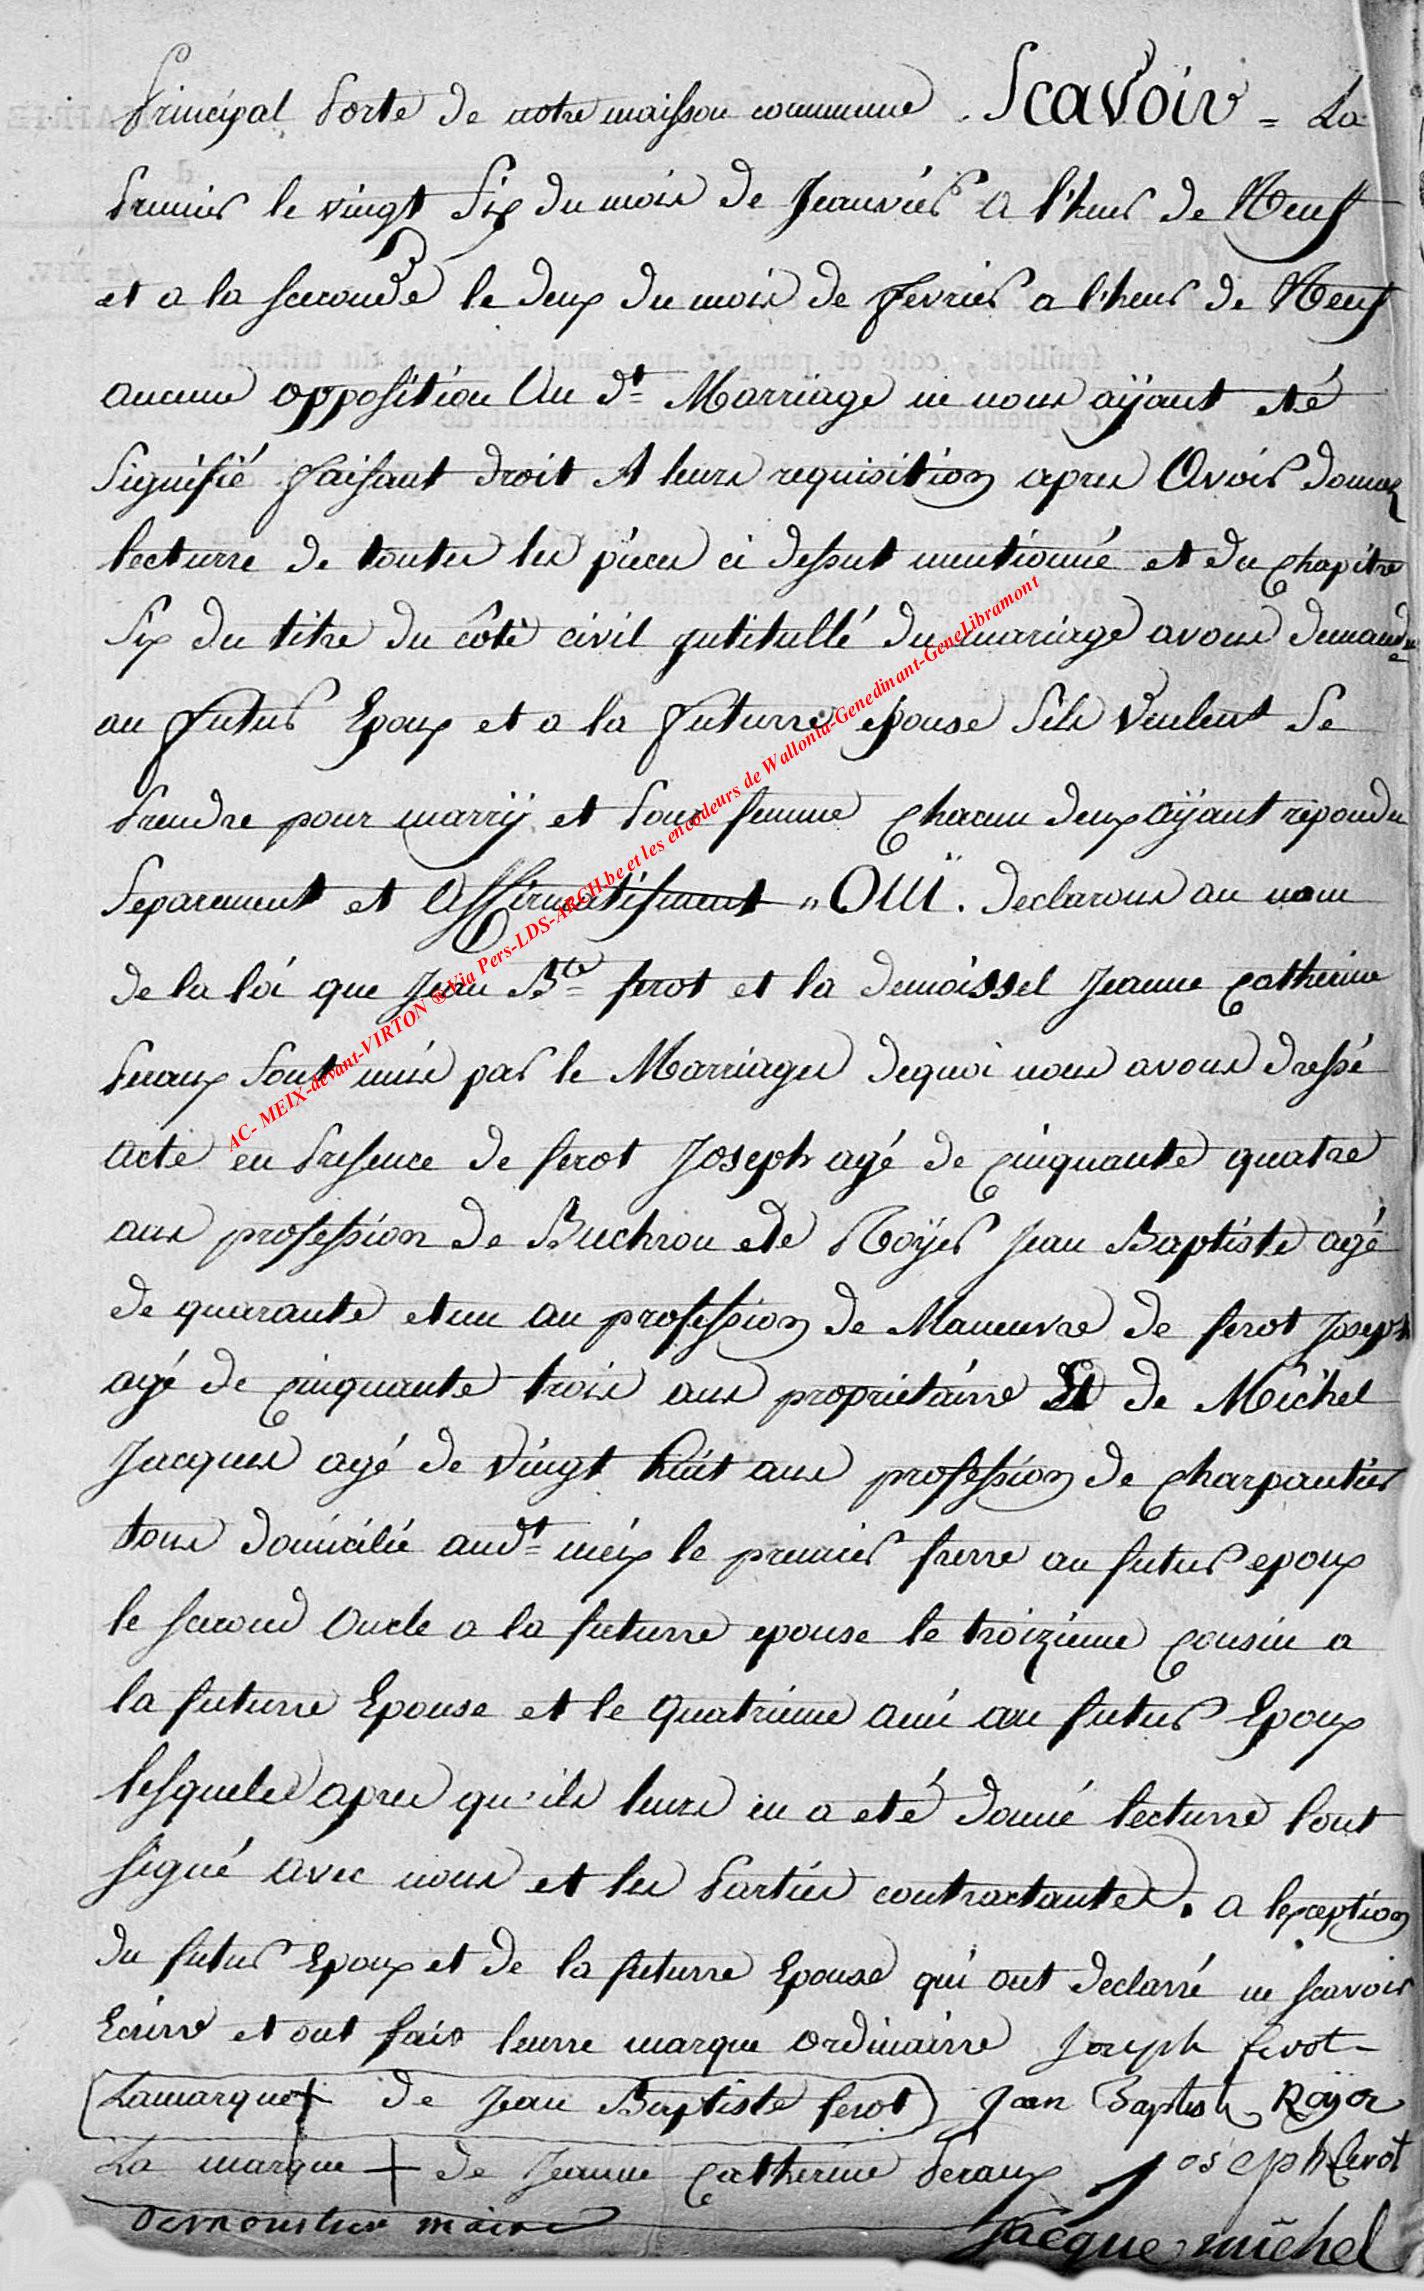 Principal Porte de notre maisson commune . Scavoir = La
Premier le vingt Six du mois de Jeanvier a l'heur de Neuf
et a la seconde le deux du mois de fevrier a l'heur de Neuf
aucune opposition Au dt Marriage ne nous aÿant eté
Signifié faisant droit A leurs requisition apres Avoir donnez
lecturre de toutes les pieces ci dessut mentionné et du chapitre
Six du titre du côté civil jntitullé du mariage avons demandé
au futur Epoux et a la futurre epouse Sils veulent Se
Prendre pour marrÿ et Pour femme chacun deux aÿant répondu
Separement et Affirmatifment " OUÏ . declarons au nom
de la loi que Jean Bte ferot et la demoissel Jeanne catherine
Peraux Sont unis par le Marriages dequoi nous avons dressé
acte en Presence de ferot Joseph agé de cinquante quatre
ans profession de Buchron de Roÿer Jean Baptiste agé
de quarante et un an profession de Manuvre de ferot Joseph
agé de cinquante trois ans proprietairre Et de Michel
Jacques agé de vingt huit ans profession de charpantier
tous domicilié audt méix le premier frerre au futur epoux
le second oncle a la futurre epouse le troizieme cousin a
la futurre Epouse et le quatrieme ami au futur Epoux
lesqueles apres qu'ils leurs en a eté donné lecturre l'ont
signé avec nous et les Parties contractantes . a lexception
du futur Epoux et de la futurre Epouse qui ont declarré ne scavoir
Ecrirre et ont fair leurre marque ordinairre Joseph ferot
Lamarque + de Jean Baptiste ferot Jean Baptist Royer
La marque + de Jeanne catherine Peraux Joseph ferot
maire Jacque michel
AC- MEIX-devant-VIRTON ® Via Pers-LDS-ARCH.be et les encodeurs de Wallonia-Genedinant-GeneLibramont